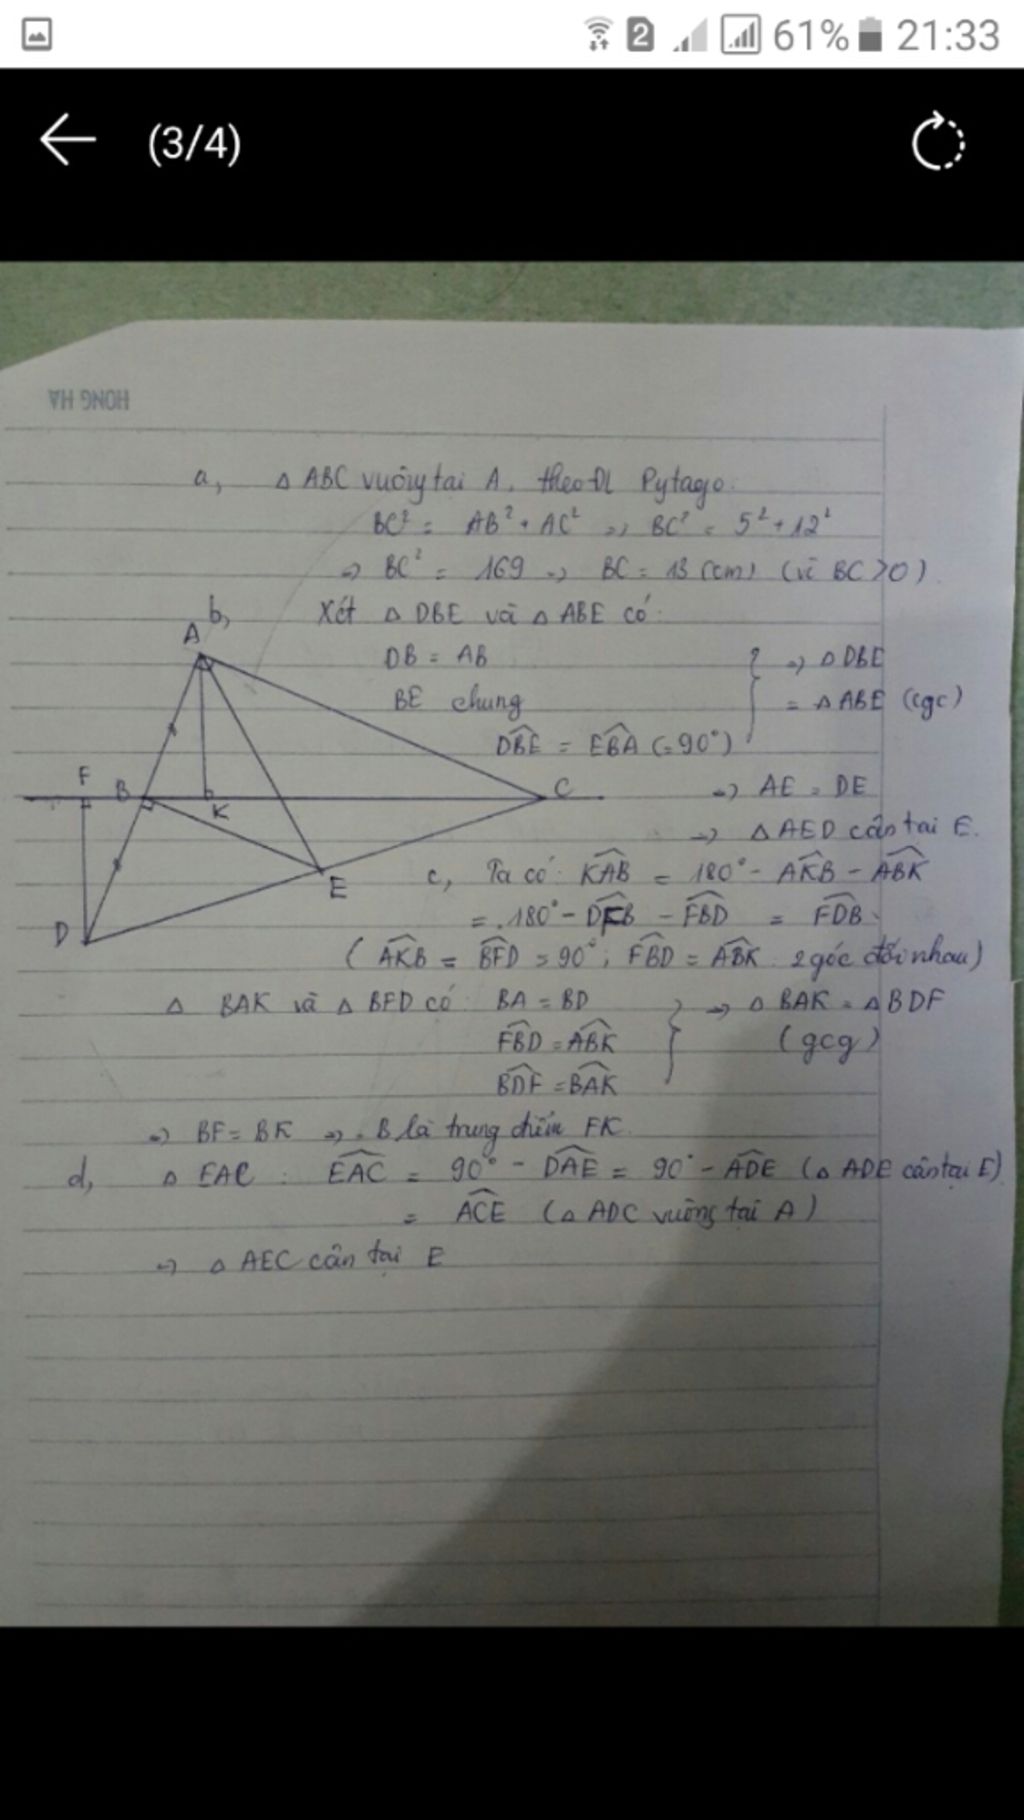 2 61% 21:33
(3/4)
HONG HA
a, △ ABC vuông tại A, theo ĐL Pytago:
BC² = AB² + AC² => BC² = 5² + 12²
=> BC² = 169 => BC = 13 (cm) (vì BC > 0).
b, Xét △ DBE và △ ABE có:
A
DB = AB } => △ DBE
BE chung = △ ABE (cgc)
D̂BE = ÊBA (= 90°)
F B K C => AE = DE
=> △ AED cân tại E.
E c, Ta có: K̂AB = 180° - ÂKB - ÂBK
D = 180° - D̂FB - F̂BD = F̂DB
(ÂKB = B̂FD = 90°; F̂BD = ÂBK: 2 góc đối nhau)
△ BAK và △ BFD có: BA = BD } => △ BAK = △ BDF
F̂BD = ÂBK (gcg)
B̂DF = B̂AK
=> BF = BK => B là trung điểm FK.
d, △ EAC: ÊAC = 90° - D̂AE = 90° - ÂDE (△ ADE cân tại E)
= ÂCE (△ ADC vuông tại A)
=> △ AEC cân tại E